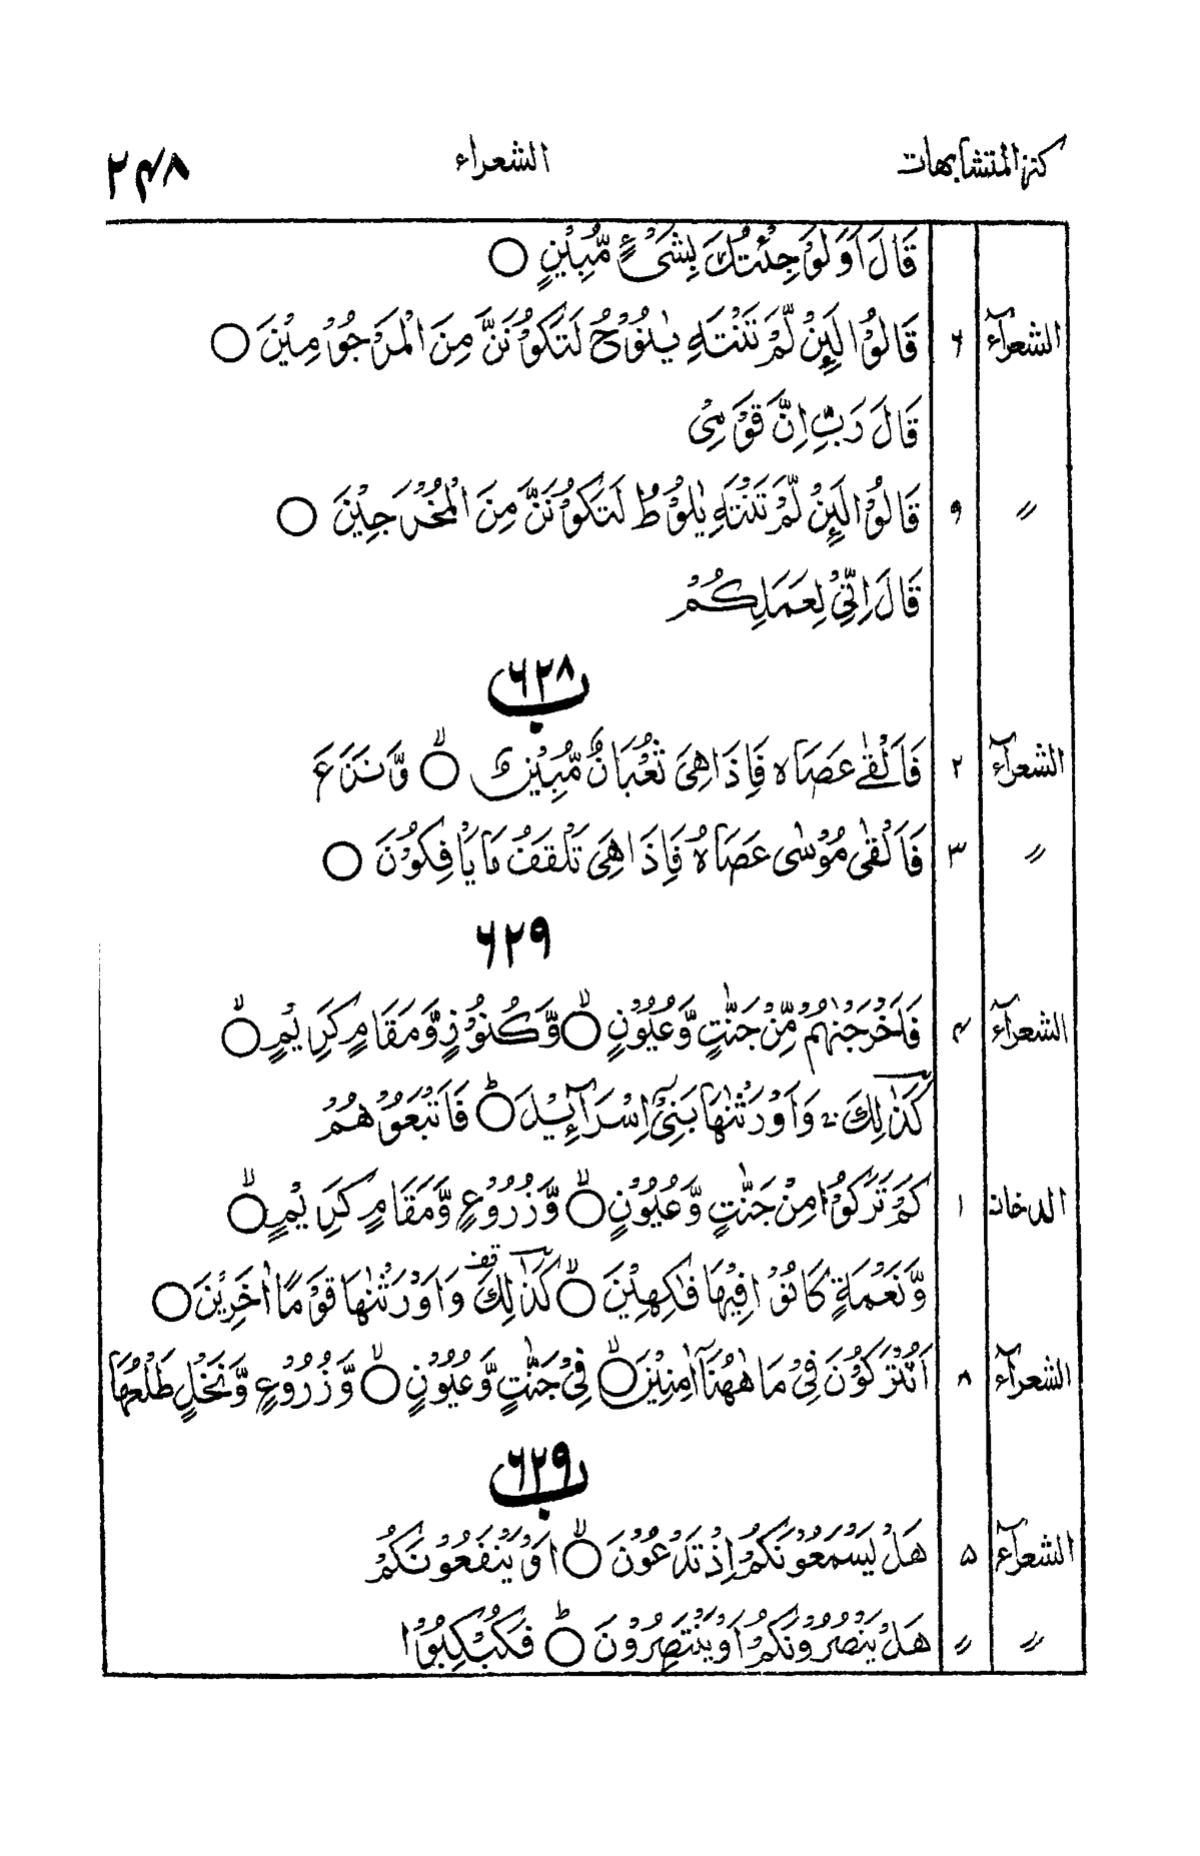 كنز المتشابهات الشعراء ۲۴۸
قَالَ اَوَلَوْ جِئْتُكَ بِشَیْءٍ مُّبِیْنٍ ○
الشعرآء ۶ قَالُوْا لَئِنْ لَّمْ تَنْتَهِ یٰنُوْحُ لَتَكُوْنَنَّ مِنَ الْمَرْجُوْمِیْنَ ○
قَالَ رَبِّ اِنَّ قَوْمِیْ
〃 ۹ قَالُوْا لَئِنْ لَّمْ تَنْتَهِ یٰلُوْطُ لَتَكُوْنَنَّ مِنَ الْمُخْرَجِیْنَ ○
قَالَ اِنِّیْ لِعَمَلِكُمْ
۶۲۸ ب
الشعرآء ۲ فَاَلْقٰی عَصَاهُ فَاِذَا هِیَ ثُعْبَانٌ مُّبِیْنٌ ○ۙ وَّنَزَعَ
〃 ۳ فَاَلْقٰی مُوْسٰی عَصَاهُ فَاِذَا هِیَ تَلْقَفُ مَا یَاْفِكُوْنَ ○
۶۲۹
الشعرآء ۴ فَاَخْرَجْنٰهُمْ مِّنْ جَنّٰتٍ وَّعُیُوْنٍ ○ۙ وَّكُنُوْزٍ وَّمَقَامٍ كَرِیْمٍ ○ۙ
كَذٰلِكَ ؕ وَاَوْرَثْنٰهَا بَنِیْۤ اِسْرَآءِیْلَ ○ؕ فَاَتْبَعُوْهُمْ
الدخان ۱ كَمْ تَرَكُوْا مِنْ جَنّٰتٍ وَّعُیُوْنٍ ○ۙ وَّزُرُوْعٍ وَّمَقَامٍ كَرِیْمٍ ○ۙ
وَّنَعْمَةٍ كَانُوْا فِیْهَا فٰكِهِیْنَ ○ۙ كَذٰلِكَ قف وَاَوْرَثْنٰهَا قَوْمًا اٰخَرِیْنَ ○
الشعرآء ۸ اَتُتْرَكُوْنَ فِیْ مَا هٰهُنَاۤ اٰمِنِیْنَ ○ۙ فِیْ جَنّٰتٍ وَّعُیُوْنٍ ○ۙ وَّزُرُوْعٍ وَّنَخْلٍ طَلْعُهَا
۶۲۹ ب
الشعرآء ۵ هَلْ یَسْمَعُوْنَكُمْ اِذْ تَدْعُوْنَ ○ۙ اَوْ یَنْفَعُوْنَكُمْ
〃 〃 هَلْ یَنْصُرُوْنَكُمْ اَوْ یَنْتَصِرُوْنَ ○ؕ فَكُبْكِبُوْا